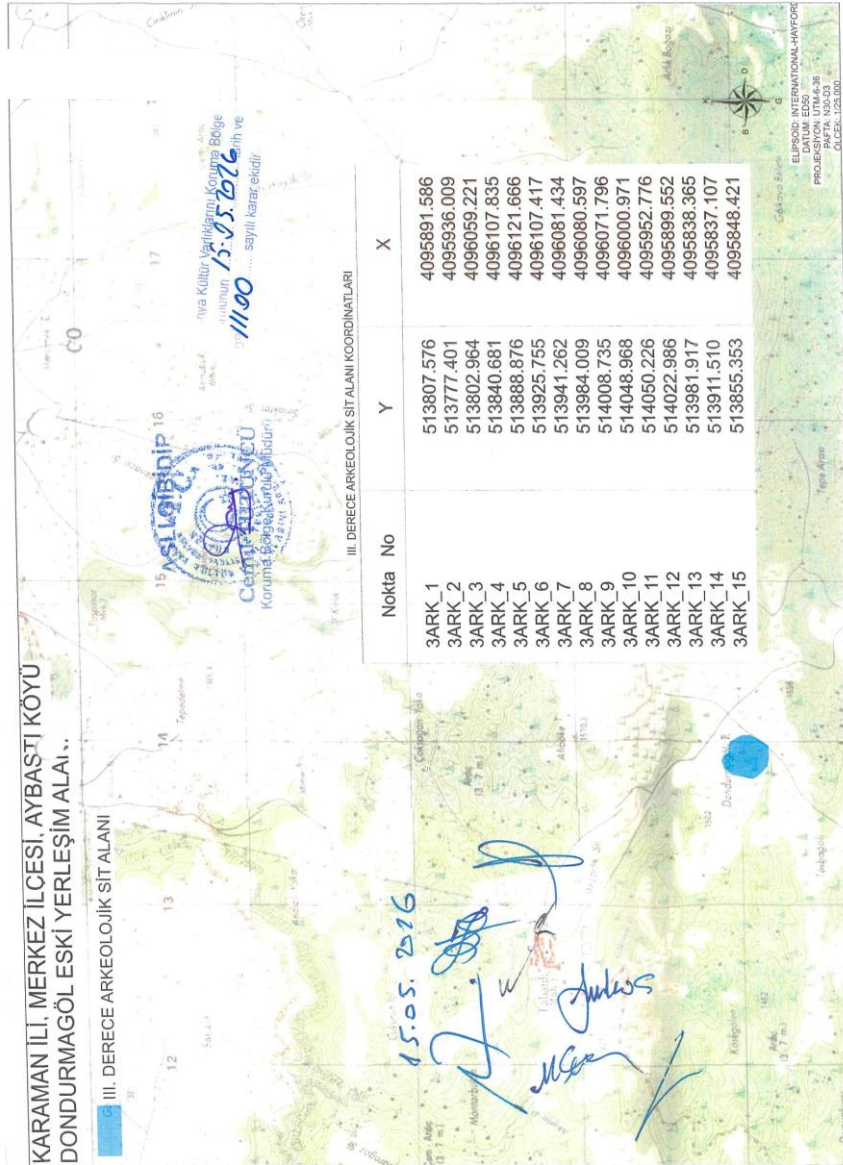 KARAMAN İLİ, MERKEZ İLÇESİ, AYBASTI KÖYÜ
DONDURMAGÖL ESKİ YERLEŞİM
III. DERECE ARKEOLOJİK SİT ALANI
12
13
14
15
16
17
Tepedelme
ASLI GİBİDİR
Koruma Bölge Kurulu Müdürü
Kültür Varlıklarını Koruma Bölge
15.05.2026 tarih ve
1100 sayılı karar ekidir
15.05.2026
III. DERECE ARKEOLOJİK SİT ALANI KOORDİNATLARI
Nokta No Y X
3ARK_1 513807.576 4095891.586
3ARK_2 513777.401 4095936.009
3ARK_3 513802.964 4096059.221
3ARK_4 513840.681 4096107.835
3ARK_5 513888.876 4096121.666
3ARK_6 513925.755 4096107.417
3ARK_7 513941.262 4096081.434
3ARK_8 513984.009 4096080.597
3ARK_9 514008.735 4096071.796
3ARK_10 514048.968 4096000.971
3ARK_11 514050.226 4095952.776
3ARK_12 514022.986 4095899.552
3ARK_13 513981.917 4095838.365
3ARK_14 513911.510 4095837.107
3ARK_15 513855.353 4095848.421
Tepe Arası
1502
K
B
D
G
ELİPSOİD: INTERNATIONAL-HAYFORD
DATUM: ED50
PROJEKSİYON: UTM-6-36
PAFTA: N30-D3
ÖLÇEK: 1/25.000